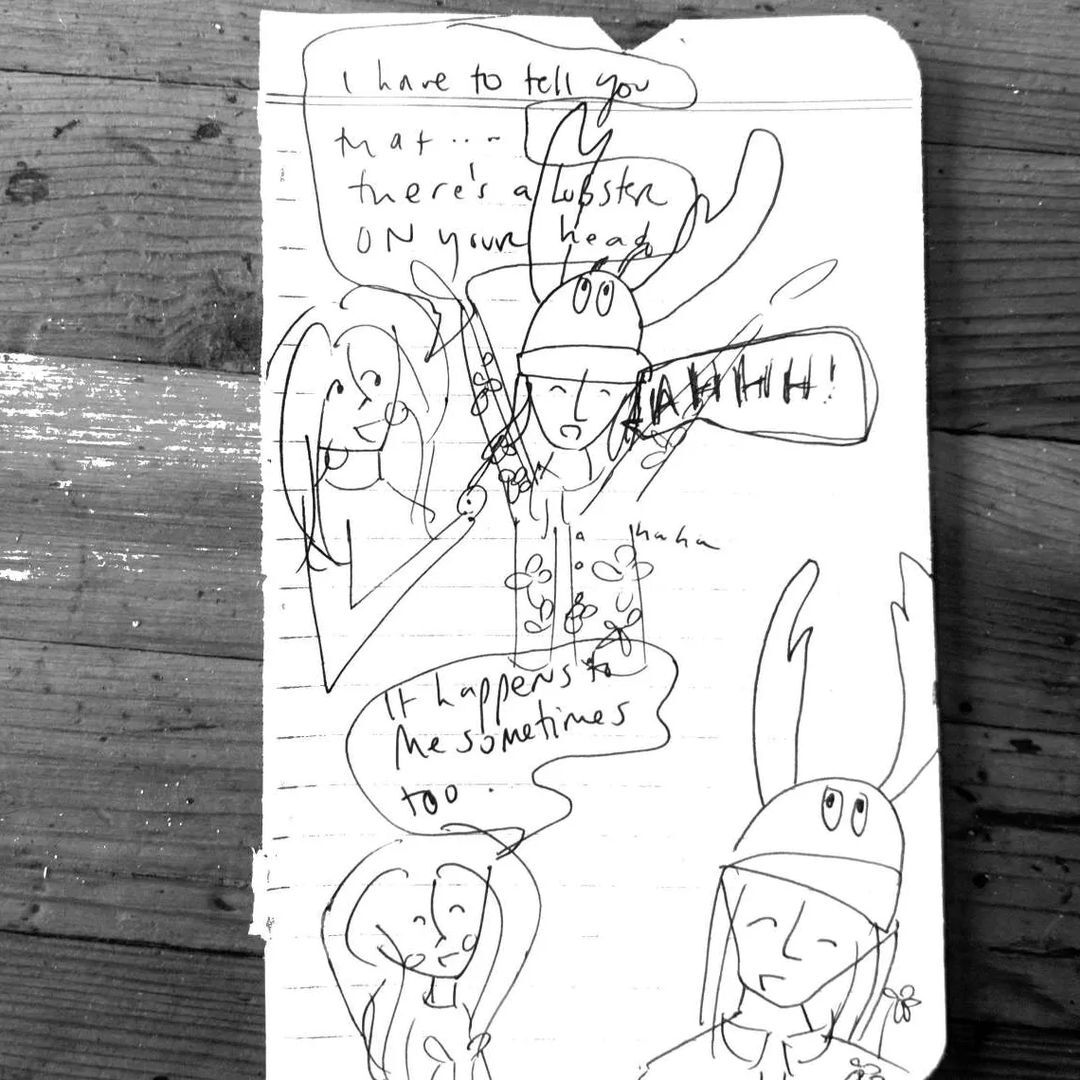 I have to tell you
that...
there's a lobster
ON your head
AHHHH!
haha
It happens to
me sometimes
too.